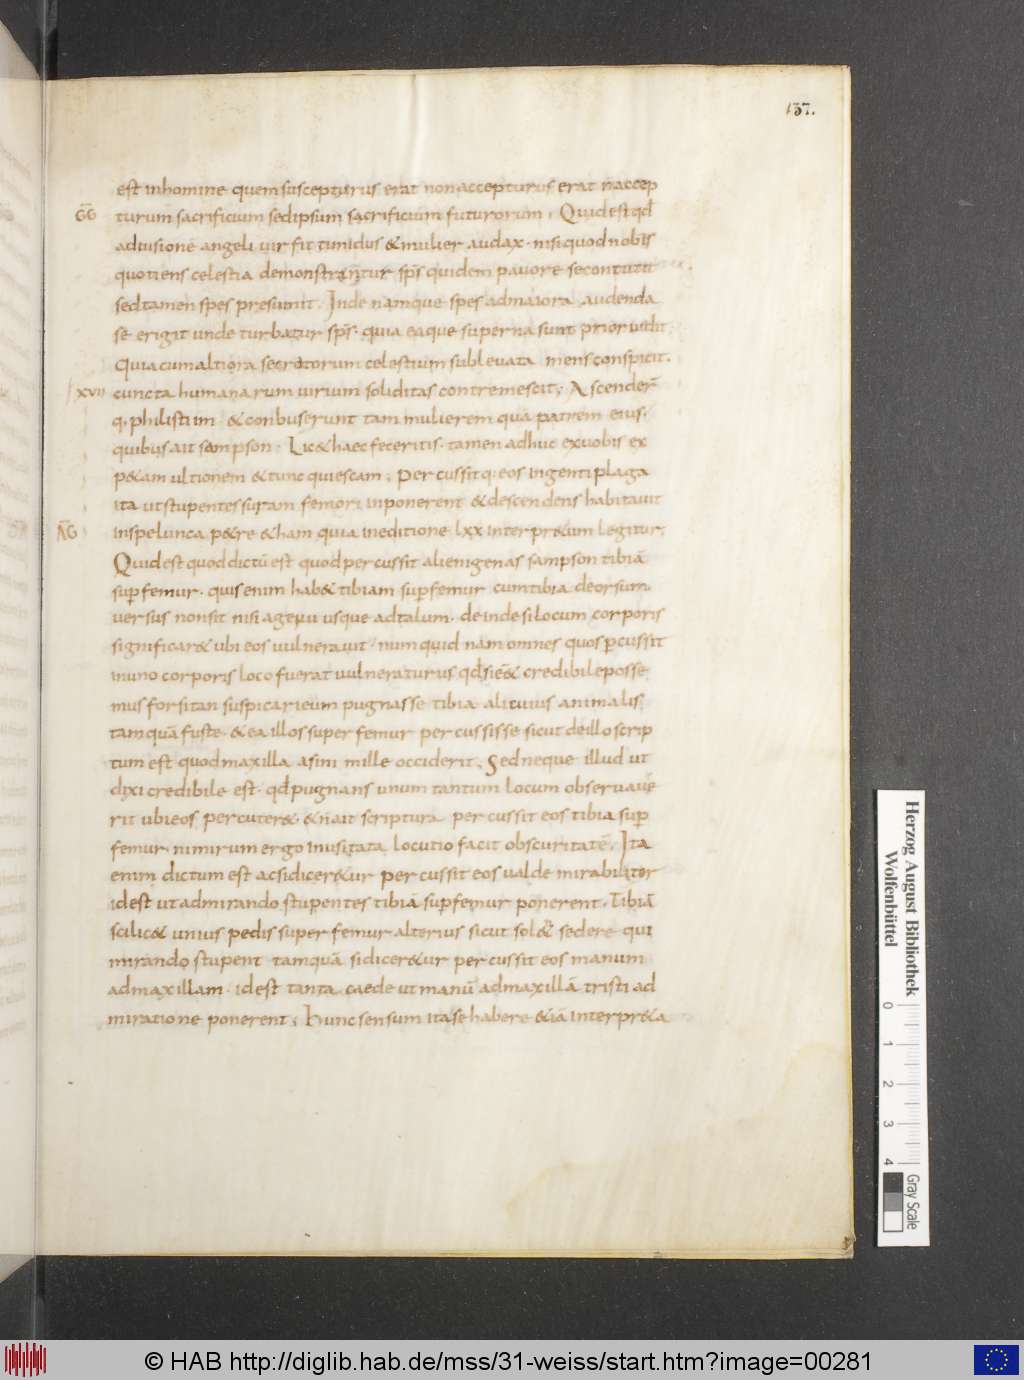 137.
est inhomine quem suscepturus erat non accepturus erat n̄ accep
G̅G̅ turum sacrificium sed ipsum sacrificium futurorum; Quid est qđ
ad uisionē angeli uir fit timidus & mulier audax · nisi quod nobis
quotiens celestia demonstrantur sp̄s quidem pauore se concutit
sed tamen spes presumit · Inde namque spes ad maiora audenda
se erigit unde turbatur sp̄s · quia ea que superna sunt prior uidit
Quia cum altiora secretorum celestium subleuata mens conspicit ·
xvii cuncta humanarum uirium soliditas contremescit; Ascender̄
q· philistiim & conbuserunt tam mulierem quā patrem eius ·
quibus ait sampson · Lic& haec feceritis · tamen adhuc ex uobis ex
p&am ultionem & tunc quiescam; Percussit q· eos ingenti plaga
ita ut stupentes suram femori inponerent & descendens habitauit
A̅G̅ in spelunca p&re &ham quia in editione lxx interpr&um legitur;
Quid est quod dictū est quod percussit alienigenas sampson tibiā
sup̄ femur · quis enim hab& tibiam sup̄ femur cum tibia deorsum
uersus non sit nisi a genu usque ad talum · deinde si locum corporis
significar& ubi eos uulnerauit · num quid nam omnes quos p̄cussit
in uno corporis loco fuerat uulneraturus qđ si ēē& credibile posse
mus forsitan suspicari eum pugnasse tibia alicuius animalis
tamquā fuste · & ea illos super femur percussisse sicut de illo scrip
tum est quod maxilla asini mille occiderit, Sed neque illud ut
dixi credibile est · qđ pugnans unum tantum locum obseruauē
rit ubi eos percuter& · & n̄ ait scriptura percussit eos tibia sup̄
femur · nimirum ergo inusitata locutio facit obscuritatē, Ita
enim dictum est ac si dicer&ur percussit eos ualde mirabiliter
id est ut admirando stupentes tibiā sup̄ femur ponerent · Tibiā
scilic& unius pedis super femur alterius sicut sol& sedere qui
mirando stupent tamquā si dicer&ur percussit eos manum
ad maxillam · id est tanta caede ut manū ad maxillā tristi ad
miratione ponerent; Hunc sensum ita se habere &iā interpr&a
Herzog August Bibliothek
Wolfenbüttel
0 1 2 3 4
Gray Scale
© HAB http://diglib.hab.de/mss/31-weiss/start.htm?image=00281